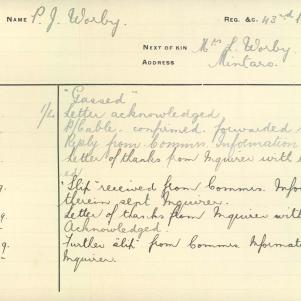 NAME P. J. Worby. REG. &C. 43rd
NEXT OF KIN Mrs L. Worby.
ADDRESS Mintaro.
"Gassed"
Letter acknowledged
R/Cable. confirmed. forwarded
Reply from Commrs. Information
Letter of thanks from Inquirer with
"Slip" received from Commrs. Infor
therein sent Inquirer.
9. Letter of thanks from Inquirer with
Acknowledged.
9. Further slip" from Commrs Informat
Inquirer.